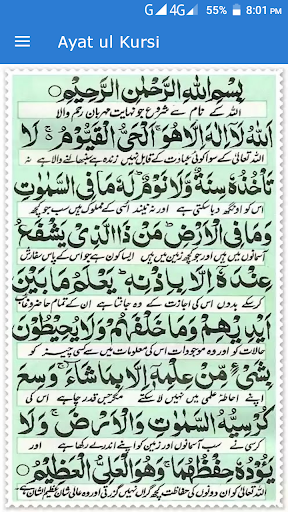 G 4G 55% 8:01 PM
Ayat ul Kursi
بِسْمِ اللّٰهِ الرَّحْمٰنِ الرَّحِيْمِ
اللہ کے نام سے شروع جو نہایت مہربان رحم والا
اَللّٰهُ لَاۤ اِلٰهَ اِلَّا هُوَ ۚ اَلْحَیُّ الْقَیُّوْمُ ۚ لَا
اللہ تعالیٰ کے سوا کوئی عبادت کے قابل نہیں زندہ ہے سنبھالنے والا ہے نہ
تَاْخُذُهٗ سِنَةٌ وَّلَا نَوْمٌ ؕ لَهٗ مَا فِی السَّمٰوٰتِ
اس کو اونگھ دبا سکتی ہے اور نہ نیند اسی کے مملوک ہیں سب جو کچھ
وَمَا فِی الْاَرْضِ ؕ مَنْ ذَا الَّذِیْ یَشْفَعُ
آسمانوں میں ہیں اور جو کچھ زمین میں ہیں ایسا کون ہے جو اس کے پاس سفارش
عِنْدَهٗۤ اِلَّا بِاِذْنِهٖ ؕ یَعْلَمُ مَا بَیْنَ
کرسکے بدوں اس کی اجازت کے وہ جانتا ہے ان کے تمام حاضر و غائب
اَیْدِیْهِمْ وَمَا خَلْفَهُمْ ۚ وَلَا یُحِیْطُوْنَ
حالات کو اور وہ موجودات اس کی معلومات میں سے کسی چیز کو
بِشَیْءٍ مِّنْ عِلْمِهٖۤ اِلَّا بِمَا شَآءَ ۚ وَسِعَ
اپنے احاطۂ علمی میں نہیں لا سکتے مگر جس قدر چاہے
كُرْسِیُّهُ السَّمٰوٰتِ وَالْاَرْضَ ۚ وَلَا
کرسی نے سب آسمانوں اور زمین کو اپنے اندر لے رکھا ہے اور
یَـُٔوْدُهٗ حِفْظُهُمَا ۚ وَهُوَ الْعَلِیُّ الْعَظِیْمُ
اللہ تعالیٰ کو ان دونوں کی حفاظت کچھ گراں نہیں گزرتی اور وہ عالی شان عظیم الشان ہے